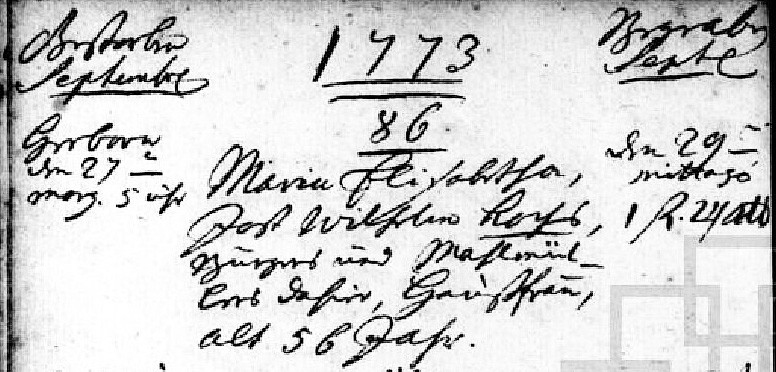 Gestorben
Septembr.
1773
Begraben
Septbr.
86.
Herborn
den 27t
morg. 5 uhr
Maria Elisabetha,
Jost Wilhelm Kochs,
Bürgers und Mahlmül-
lers dahier, Haußfrau,
alt 56 Jahr.
den 29t
mittags
1